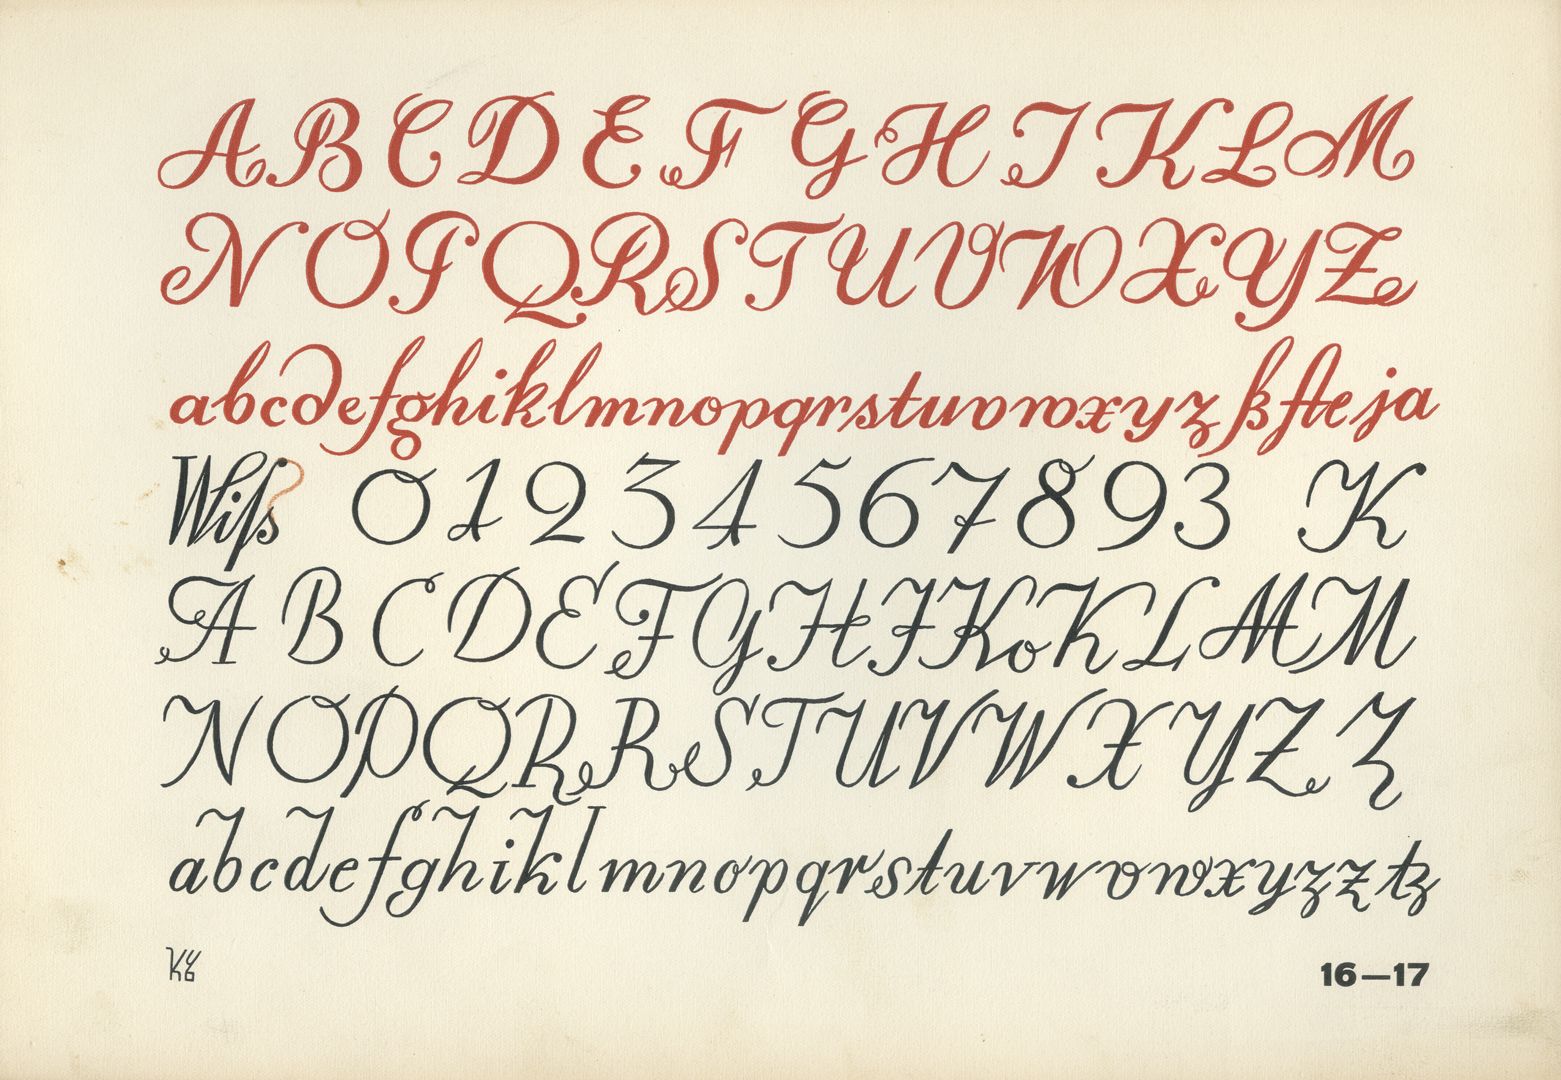 A B C D E F G H I K L M
N O P Q R S T U V W X Y Z
abcdefghiklmnopqrstuvwxyz ß ſt e ja
Wiſs 0 1 2 3 4 5 6 7 8 9 3 K
A B C D E F G H J K o K L M M
N O P Q R R S T U V W X Y Z Z
abcdefghiklmnopqrstuvwvwxyzz tz
16—17